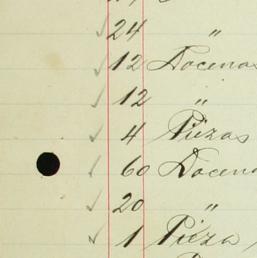 24 "
12 Docenas
12 "
4 Piezas
60 Docena
20 "
1 Pieza